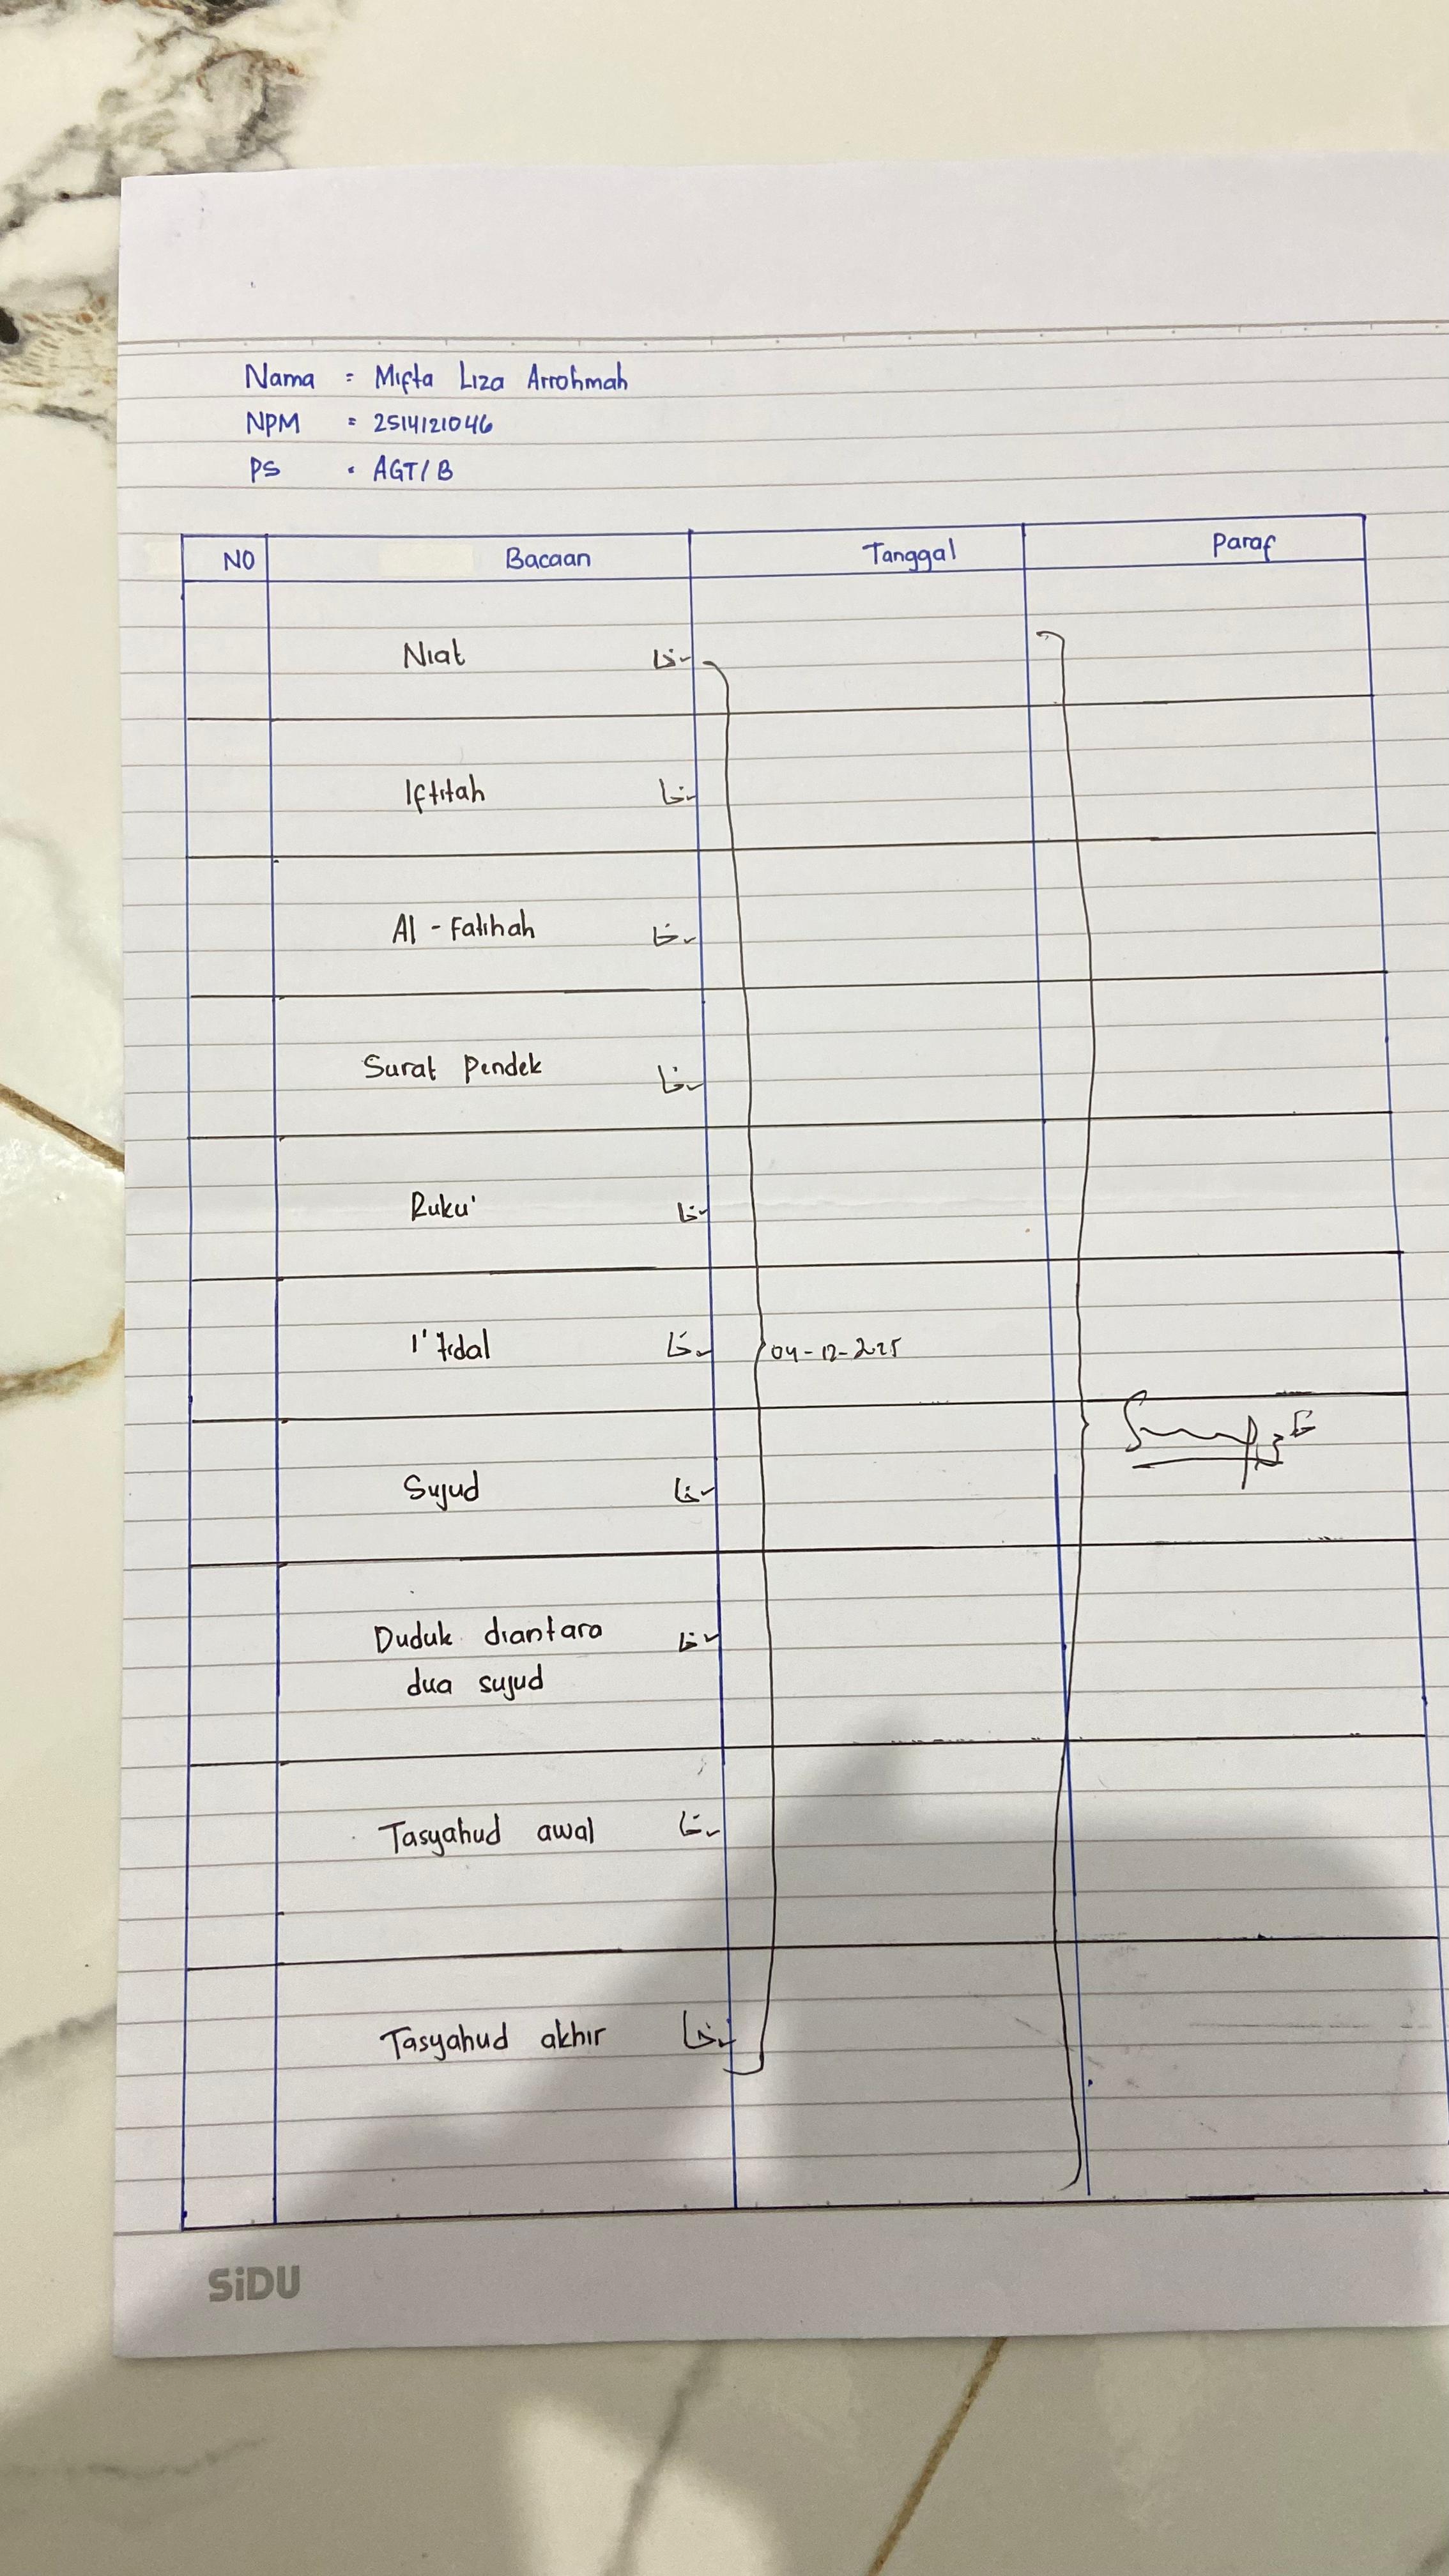 Nama = Mifta Liza Arrohmah
NPM = 2514121046
PS = AGT/B
NO Bacaan Tanggal Paraf
Niat
Iftitah
Al - Fatihah
Surat Pendek
Ruku'
I'tidal 04-12-2025
Sujud
Duduk diantara
dua sujud
Tasyahud awal
Tasyahud akhir
SiDU